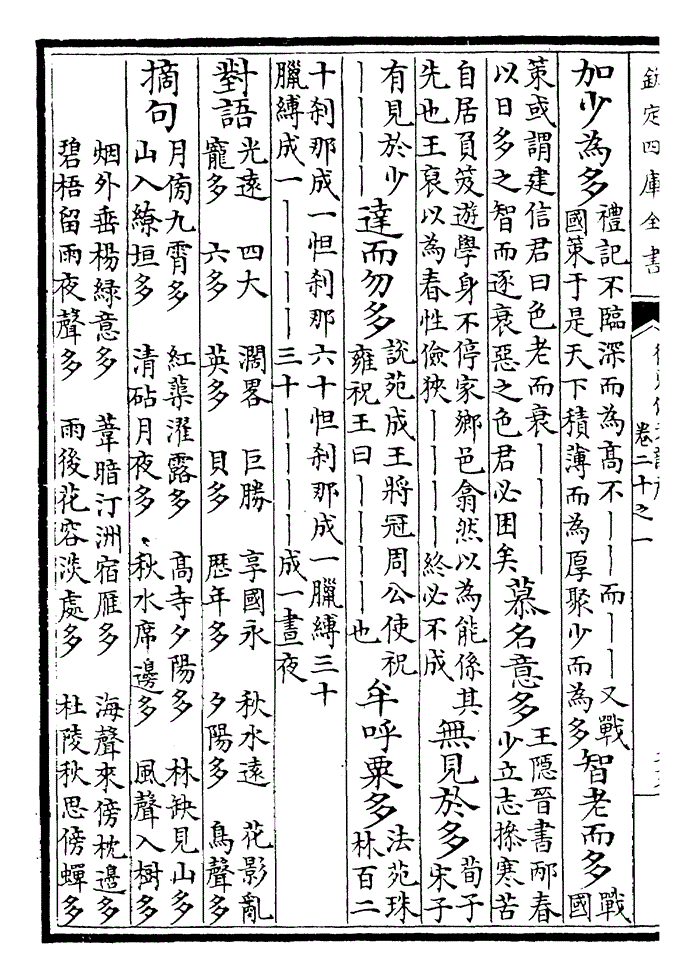 欽定四庫全書
卷二十之一
加少為多
禮記不臨深而為髙不丨丨而丨丨又戰
國策于是天下積薄而為厚聚少而為多
智老而多
戰
國
策或謂建信君曰色老而衰丨丨丨丨
以日多之智而逐衰惡之色君必困矣
慕名意多
王隱晉書邴春
少立志操寒苦
自居負笈遊學身不停家鄉邑翕然以為能係其
先也王裒以為春性儉狹丨丨丨丨終必不成
無見於多
荀子
宋子
有見於少
丨丨丨丨
達而勿多
說苑成王將冠周公使祝
雍祝王曰丨丨丨丨也
牟呼粟多
法苑珠
林百二
十刹那成一怛刹那六十怛刹那成一臘縛三十
臘縛成一丨丨丨丨三十丨丨丨丨成一晝夜
對語
光遠 四大 濶畧 巨勝 享國永 秋水遠 花影亂
寵多 六多 英多 貝多 歴年多 夕陽多 鳥聲多
摘句
月傍九霄多 紅蕖濯露多 髙寺夕陽多 林缺見山多
山入繚垣多 清砧月夜多 秋水席邊多 風聲入樹多
烟外垂楊緑意多 葦暗汀洲宿雁多 海聲來傍枕邊多
碧梧留雨夜聲多 雨後花容淡處多 杜陵秋思傍蟬多